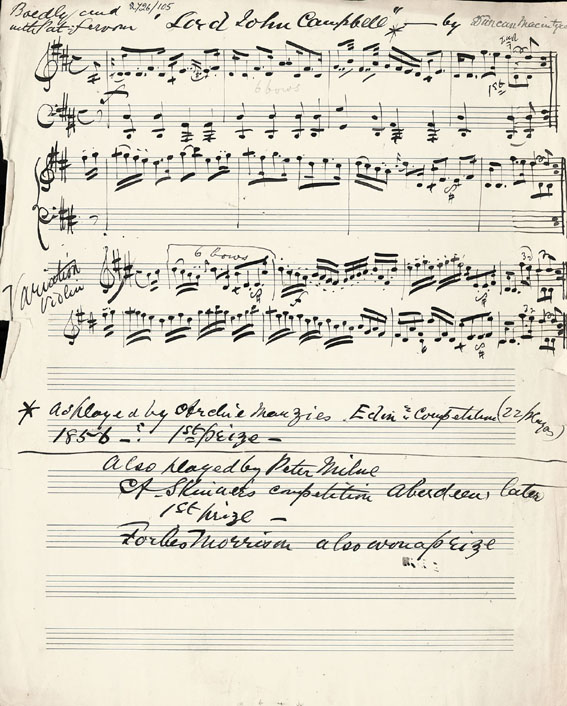 Boldly and 2726/105 "Lord John Campbell" * — by Duncan Macintyre
with
2nd
1st
6 bows
6 bows
Variation
Violin
* As played by Archie Menzies Edinr Competition (22 plays)
1856 –. 1st prize –
Also played by Peter Milne
At Skinners competition Aberdeen, later
1st prize –
Forbes Morrison also won a prize